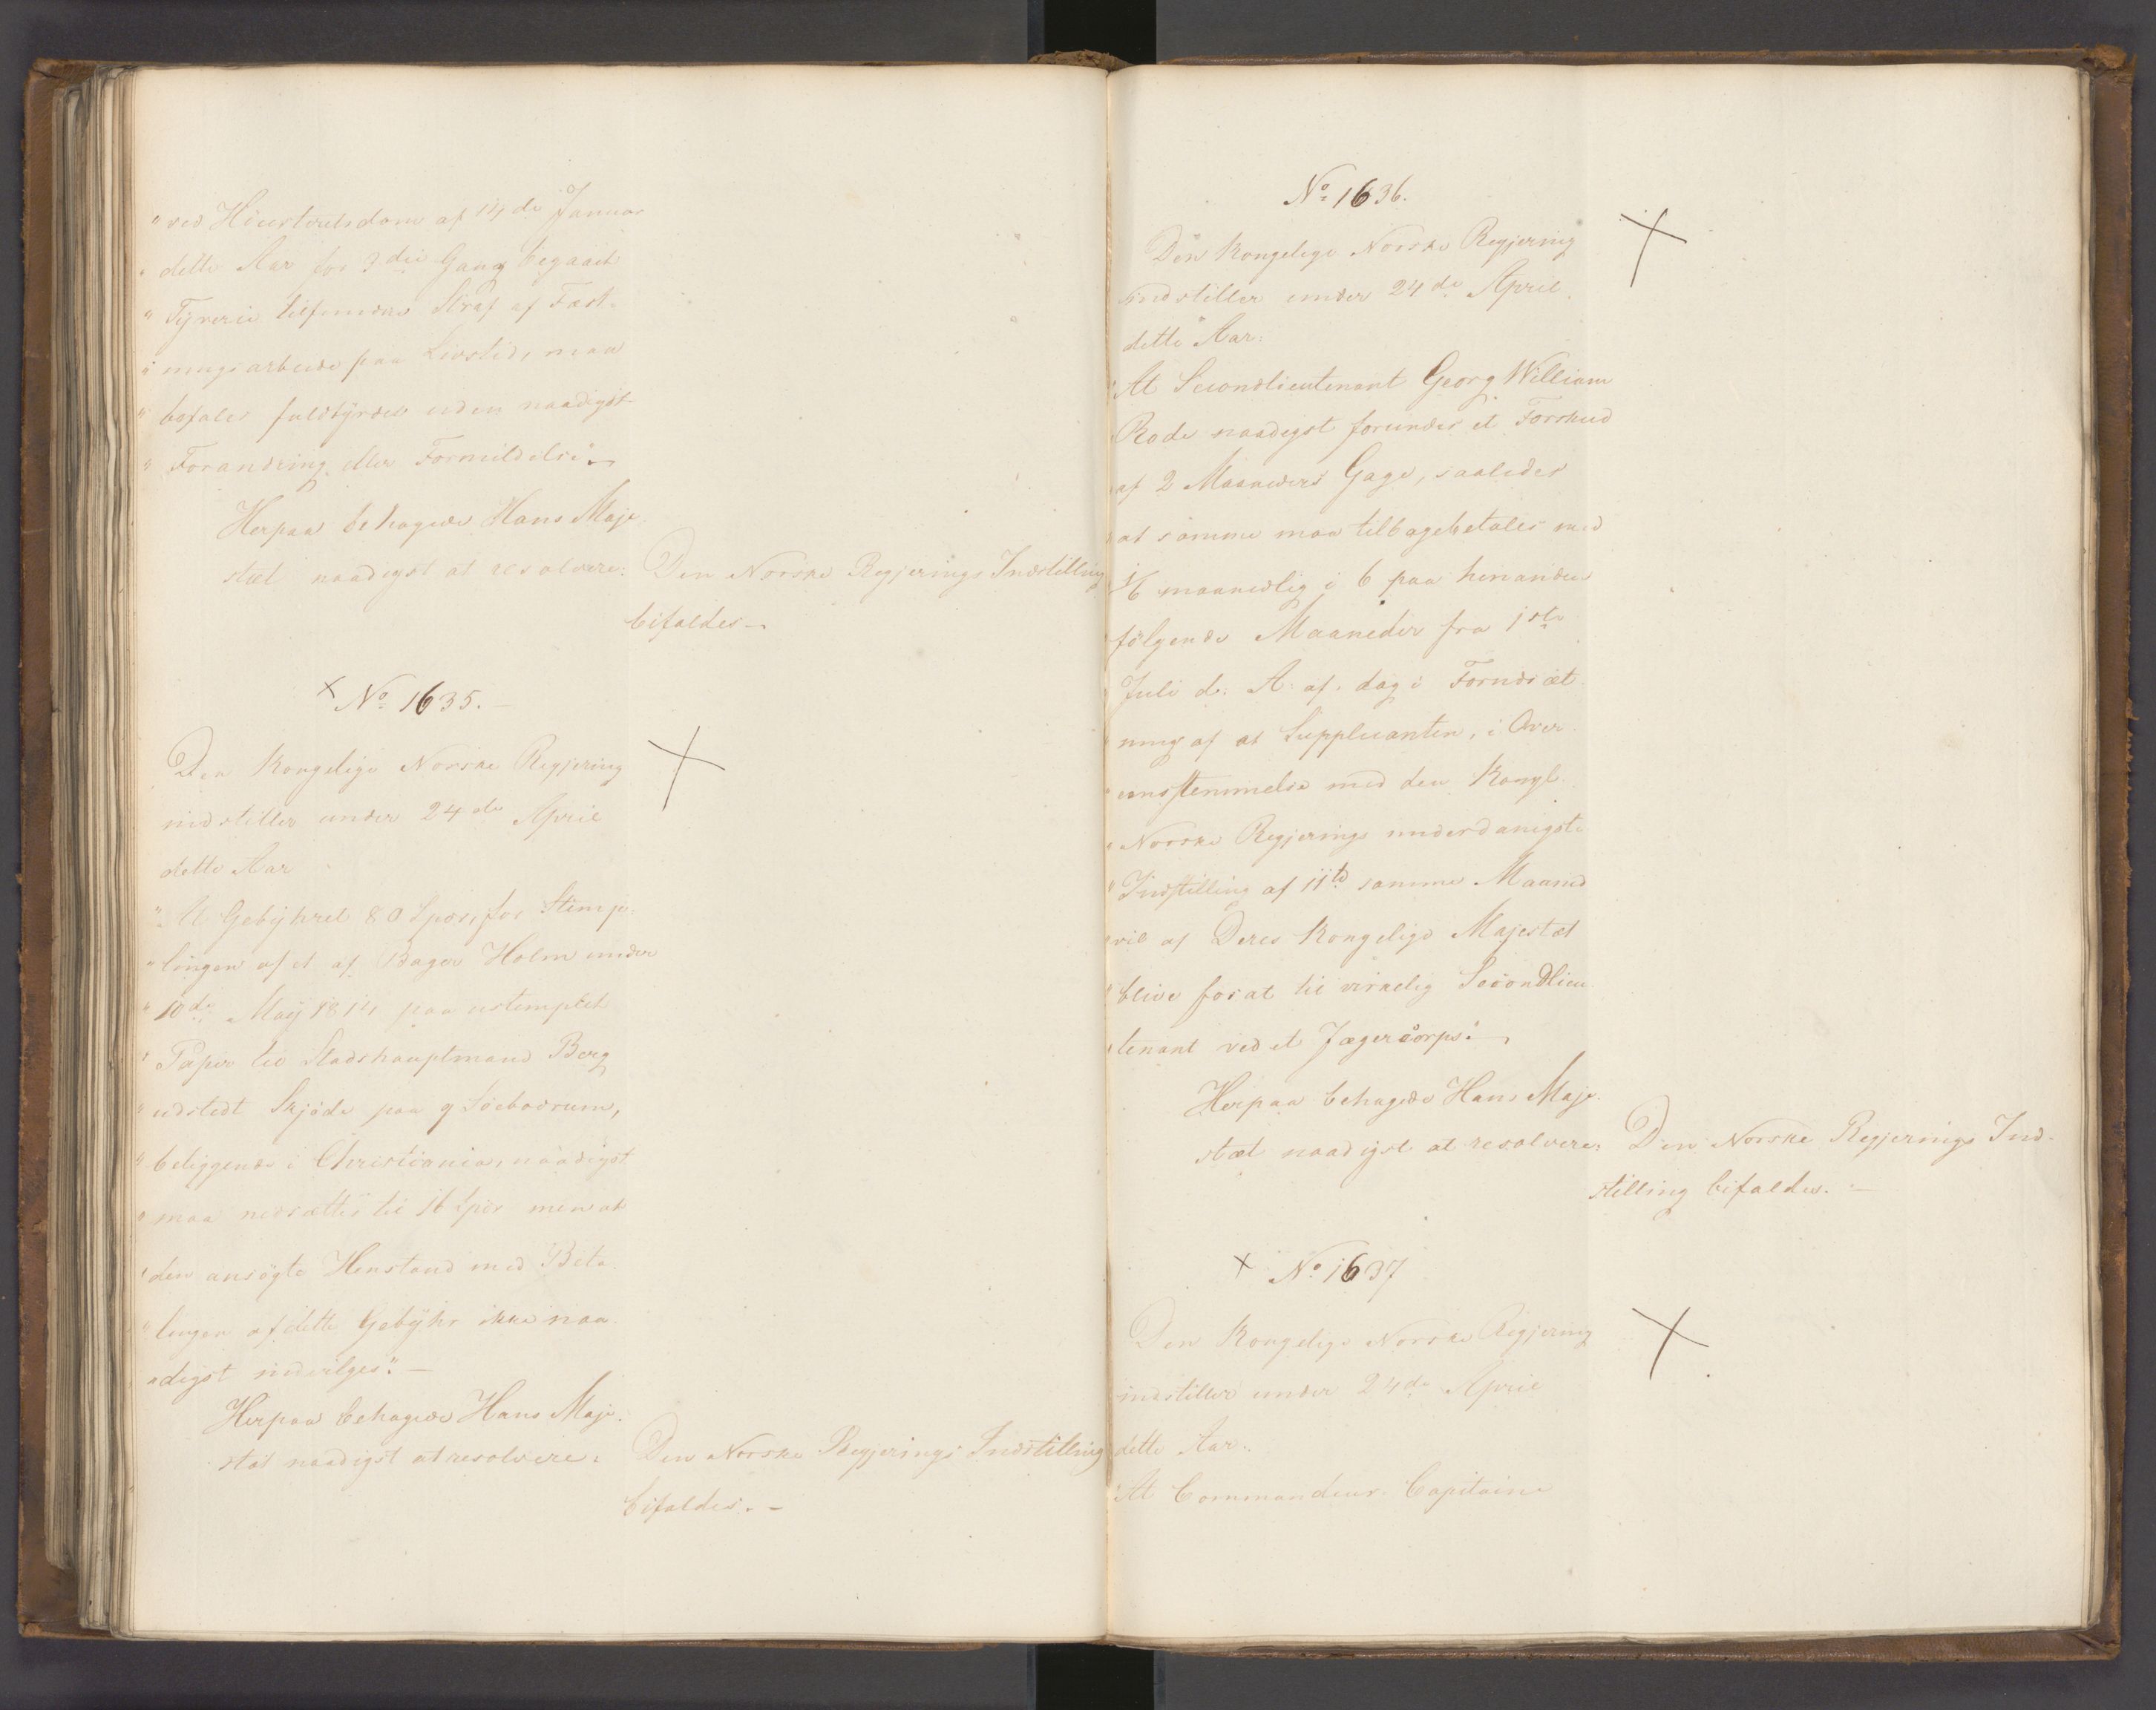 "ved Höiesteretsdom af 14de Januar
" dette Aar for 3die Gang begaaet
" Tyverie tilfundne Straf af Fæst-
" ningsarbeide paa Livstid, maa
" befales fuldbyrdet uden naadigst
" Forandring eller Formildelse."
Herpaa behagede Hans Maje-
stæt naadigst at resolvere: Den Norske Regjerings Indstilling
bifaldes.—
× No 1635.—
Den Kongelige Norske Regjering
indstiller under 24de April
dette Aar
"At Gebyhret 80 Spd, for Stemp-
"lingen af et af Bager Holm under
"10de Maij 1814 paa ustemplet
" Papir til Stadshauptmand Berg
" udstedt Skjöde paa 9 Söebodrum,
" beliggende i Christiania, naadigst
" maa nedsættes til 16 Spd men at
"den ansögte Henstand med Beta-
"lingen af dette Gebyhr ikke naa-
"digst indvilges."—
Herpaa behagede Hans Maje-
stæt naadigst at resolvere: Den Norske Regjerings Indstilling
bifaldes.—
No 1636.
Den Kongelige Norske Regjering
indstiller under 24de April
dette Aar:
"At Secondlieutenant Georg William
Rode naadigst forundes et Forskud
af 2 Maaneders Gage, saaledes
at samme maa tilbagebetales med
1/6 maanedlig i 6 paa hinanden
følgende Maaneder fra 1ste
Juli d. A. af, dog i Forudsæt-
"ning af at Supplicanten, i Over-
"ensstemmelse med den Kongl.
" Norske Regjerings underdanigste
"Indstilling af 11te samme Maaned
"vil af Deres Kongelige Majestæt
"blive forsat til virkelig Secondlieu-
"tenant ved et Jægercorps."
Herpaa behagede Hans Maje-
stæt naadigst at resolvere: Den Norske Regjerings Ind-
stilling bifaldes.—
× No 1637
Den Kongelige Norske Regjering
indstiller under 24de April
dette Aar:
"At Commandeur Capitaine